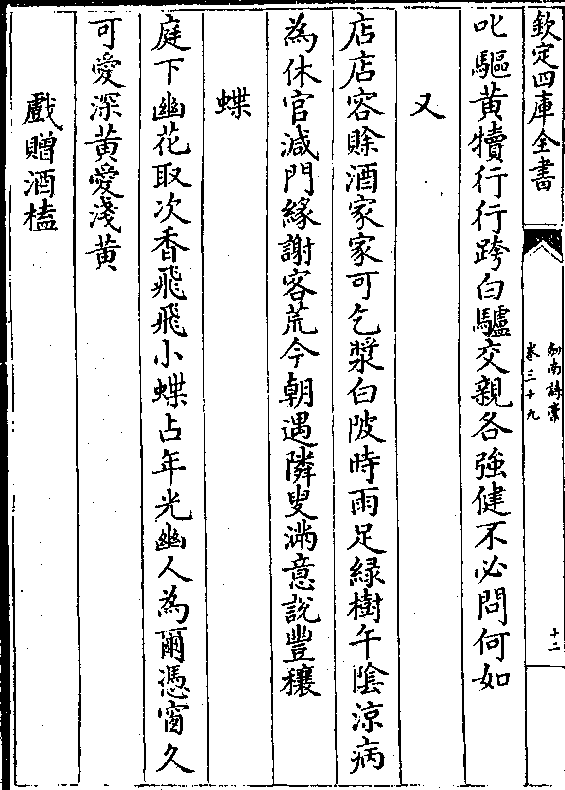 欽定四庫全書
劍南詩藁
卷三十九
十二
叱驅黃犢行行跨白驢交親各強健不必問何如
又
店店容賖酒家家可乞漿白陂時雨足緑樹午陰涼病
為休官減門緣謝客荒今朝遇隣叟滿意說豐穰
蝶
庭下幽花取次香飛飛小蝶占年光幽人為爾憑窗久
可愛深黃愛淺黃
戲贈酒榼